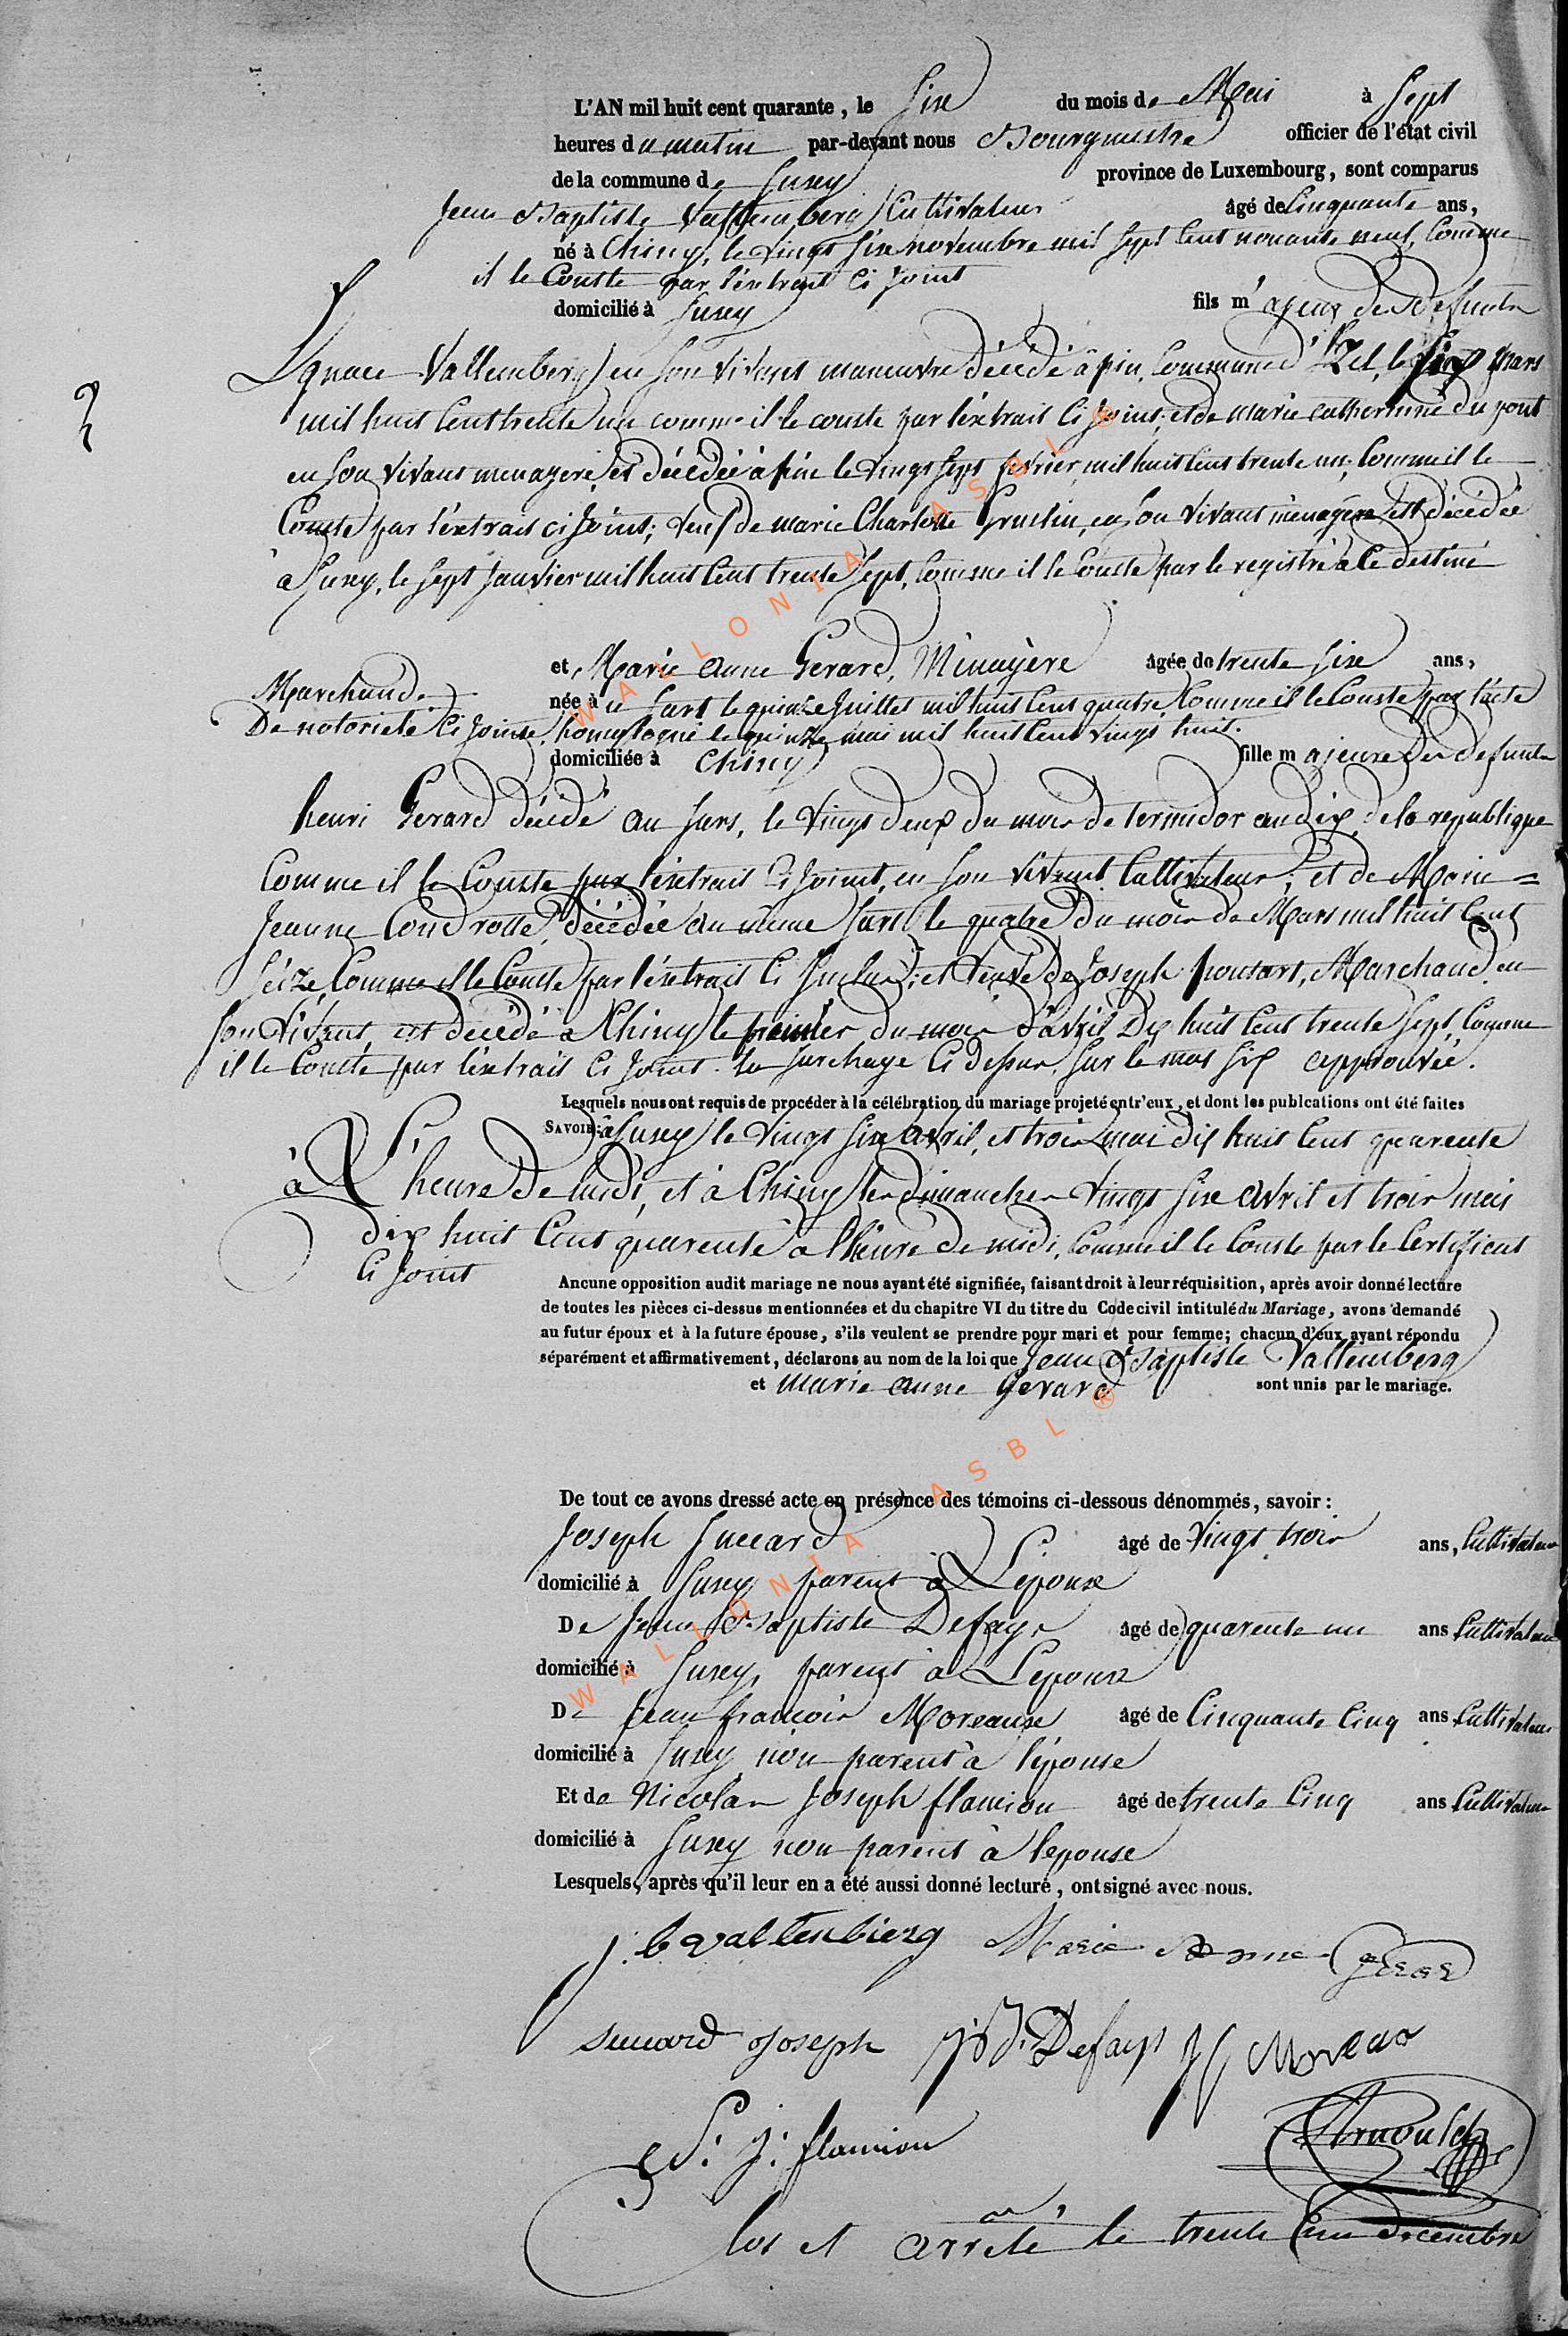 L'AN mil huit cent quarante, le Six du mois de Mai à Sept
heures du matin par-devant nous Bourgmestre officier de l'état civil
de la commune de Suxy province de Luxembourg, sont comparus
Jean Baptiste Vallemberg Cultivateur âgé de Cinquante ans,
né à Chiny, le vingt six novembre mil sept cent nonante neuf, Comme
il le Conste par l'extrait Ci Joint
domicilié à Suxy fils majeur de Defunts
Ignace Vallemberg en Son Vivant manuvre décédé à pin, Commune d'Izel, le Six mars
mil huit Cent trente un comme il le conste par l'extrait Ci Joint; et de marie catherinne du pont
en Son Vivant menagere, et décédée à pin le vingt sept fevrier mil huit Cent trente un, Comme il le
Conste par l'extrait ci Joint; veuf de marie Charlotte en Son Vivant ménagère et décédée
à Suxy, le Sept Janvier mil huit Cent trente Sept, Comme il le Conste par le registre à Ce destiné
et Marie anne Gerard, Ménagère âgée de trente six ans,
Marchande
née à u Sart le quinze Juillet mil huit Cent quatre Comme il le Conste par l'acte
De notorieté Ci Jointe, homologué le quinze mai mil huit Cent vingt huit.
domiciliée à Chiny fille majeure de defunts
henri Gerard décédé au Sart, le Vingt deux du mois de termidor an dix, de la republique
Comme il le Conste par l'extrait Ci Joint, en Son Vivant Cultivateur; et de Marie=
Jeanne Condrotte, décédée au même Sart le quatre du mois de Mars mil huit Cent
Séize, Comme il le Conste par l'extrait Ci Inclus; et veuve de Joseph ponsart, Marchand en
Son Vivant, et décédé à Chiny le premier du mois d'avril Dix huit Cent trente Sept, Comme
il le Conste par l'extrait Ci Joint. la Surchage Ci Dessus, Sur le mot Six approuvée.
Lesquels nous ont requis de procéder à la célébration du mariage projeté entr'eux, et dont les publcations ont été faites
SAVOIR: à Suxy le Vingt Six Avril, et trois mai dix huit Cent quarente
à L'heure De midi, et à Chiny les dimanches Vingt Six Avril et trois mai
dix huit Cent quarente à l'heure de midi, Comme il le Conste par le Certificat
Ci Joint
Aucune opposition audit mariage ne nous ayant été signifiée, faisant droit à leur réquisition, après avoir donné lecture
de toutes les pièces ci-dessus mentionnées et du chapitre VI du titre du Code civil intitulé du Mariage, avons demandé
au futur époux et à la future épouse, s'ils veulent se prendre pour mari et pour femme; chacun d'eux ayant répondu
séparément et affirmativement, déclarons au nom de la loi que Jean Baptiste Vallemberg
et marie anne Gerard sont unis par le mariage.
De tout ce avons dressé acte en présence des témoins ci-dessous dénommés, savoir:
Joseph Succard âgé de Vingt trois ans, Cultivateur
domicilié à Suxy parent à L'epoux
De Jean Baptiste Defays âgé de quarente un ans Cultivateur
domicilié à Suxy, parent à L'epoux
De Jean francois Moreaux âgé de Cinquante Cinq ans Cultivateur
domicilié à Suxy, non parent à l'épouse
Et de Nicolas Joseph flamion âgé de trente Cinq ans Cultivateur
domicilié à Suxy non parent à lepouse
Lesquels, après qu'il leur en a été aussi donné lecture, ont signé avec nous.
j. b vallenbierg Marie Anne Gerar
suuard Joseph J. B. Defays J f Moreaux
N. J. flamion Arnould
Clos et arrêté le trente un décembre
WALLONIA ASBL ®
WALLONIA ASBL ®